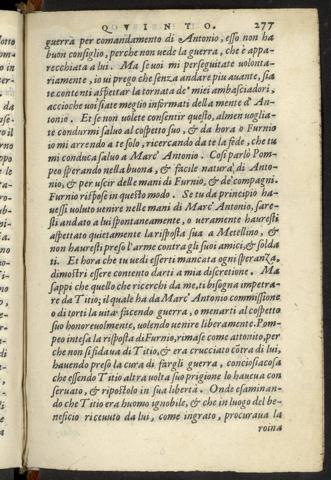 QVINTO. 277
guerra per comandamento di Antonio, esso non ha
buon consiglio, perche non vede la guerra, che è appa-
recchiata a lui. Ma se voi mi perseguitate volonta-
riamente, io ui prego che senza andare piu auante, sia
te contenti aspettar la tornata de' miei ambasciadori,
accioche uoi siate meglio informati della mente d'An-
tonio. Et se non uolete consentir questo, almen uoglia-
te condurmi saluo al cospetto suo, & da hora o Furnio
io mi arrendo a te solo, ricercando da te la fede, che tu
mi conduca saluo a Marc' Antonio. Cosi parlò Pom-
peo sperando nella buona, & facile natura di Anto-
nio, & per uscir delle mani di Furnio, & de' compagni.
Furnio rispose in questo modo. Se tu da principio ha-
uessi uoluto uenire nelle mani di Marc' Antonio, sare-
sti andato a lui spontaneamente, o ueramente hauresti
aspettato quietamente la risposta sua a Metellino, &
non hauresti preso l'arme contra gli suoi amici, & solda
ti. Et hora che tu uedi esserti mancata ogni speranza,
dimostri essere contento darti a mia discretione. Ma
sappi che quello che ricerchi da me, ti bisogna impetra-
re da Titio; il quale ha da Marc' Antonio commissione
o di torti la uita facendo guerra, o menarti al cospetto
suo honoreuolmente, uolendo uenire liberamente. Pom-
peo intesa la risposta di Furnio, rimase come attonito, per
che non si fidaua di Titio, & era crucciato cōtra di lui,
hauendo preso la cura di fargli guerra, conciosiacosa
che essendo Titio altra volta suo prigione lo haueua con
seruato, & ripostolo in sua libertà. Onde esaminan-
do che Titio era huomo ignobile, & che in luogo del be-
neficio riceuuto da lui, come ingrato, procuraua la
roina